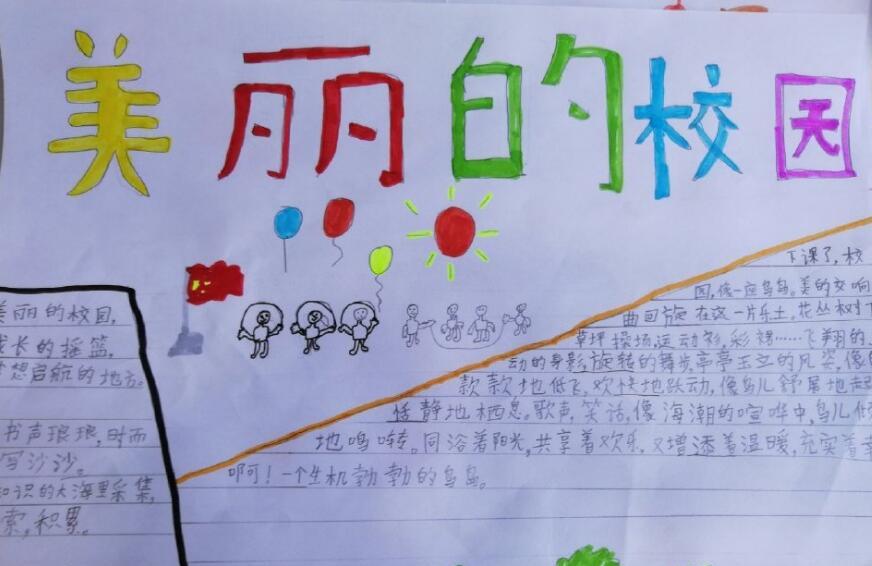 美丽的校园
美丽的校园,
成长的摇篮,
梦想启航的地方。
书声琅琅,时而
写沙沙。
知识的大海里采集,
索,积累。
下课了,校
园,像一座鸟岛。美的交响
曲回旋在这一片乐土。花丛树下
草坪操场,运动衫,彩裙……飞翔的
动的身影,旋转的舞步,亭亭玉立的风姿,像
款款地低飞,欢快地跃动,像鸟儿舒展地
恬静地栖息。歌声,笑话,像海潮的喧哗中,鸟儿
地鸣啭。同浴着阳光,共享着欢乐,又增添着温暖,充实着
啊可!一个生机勃勃的鸟岛。